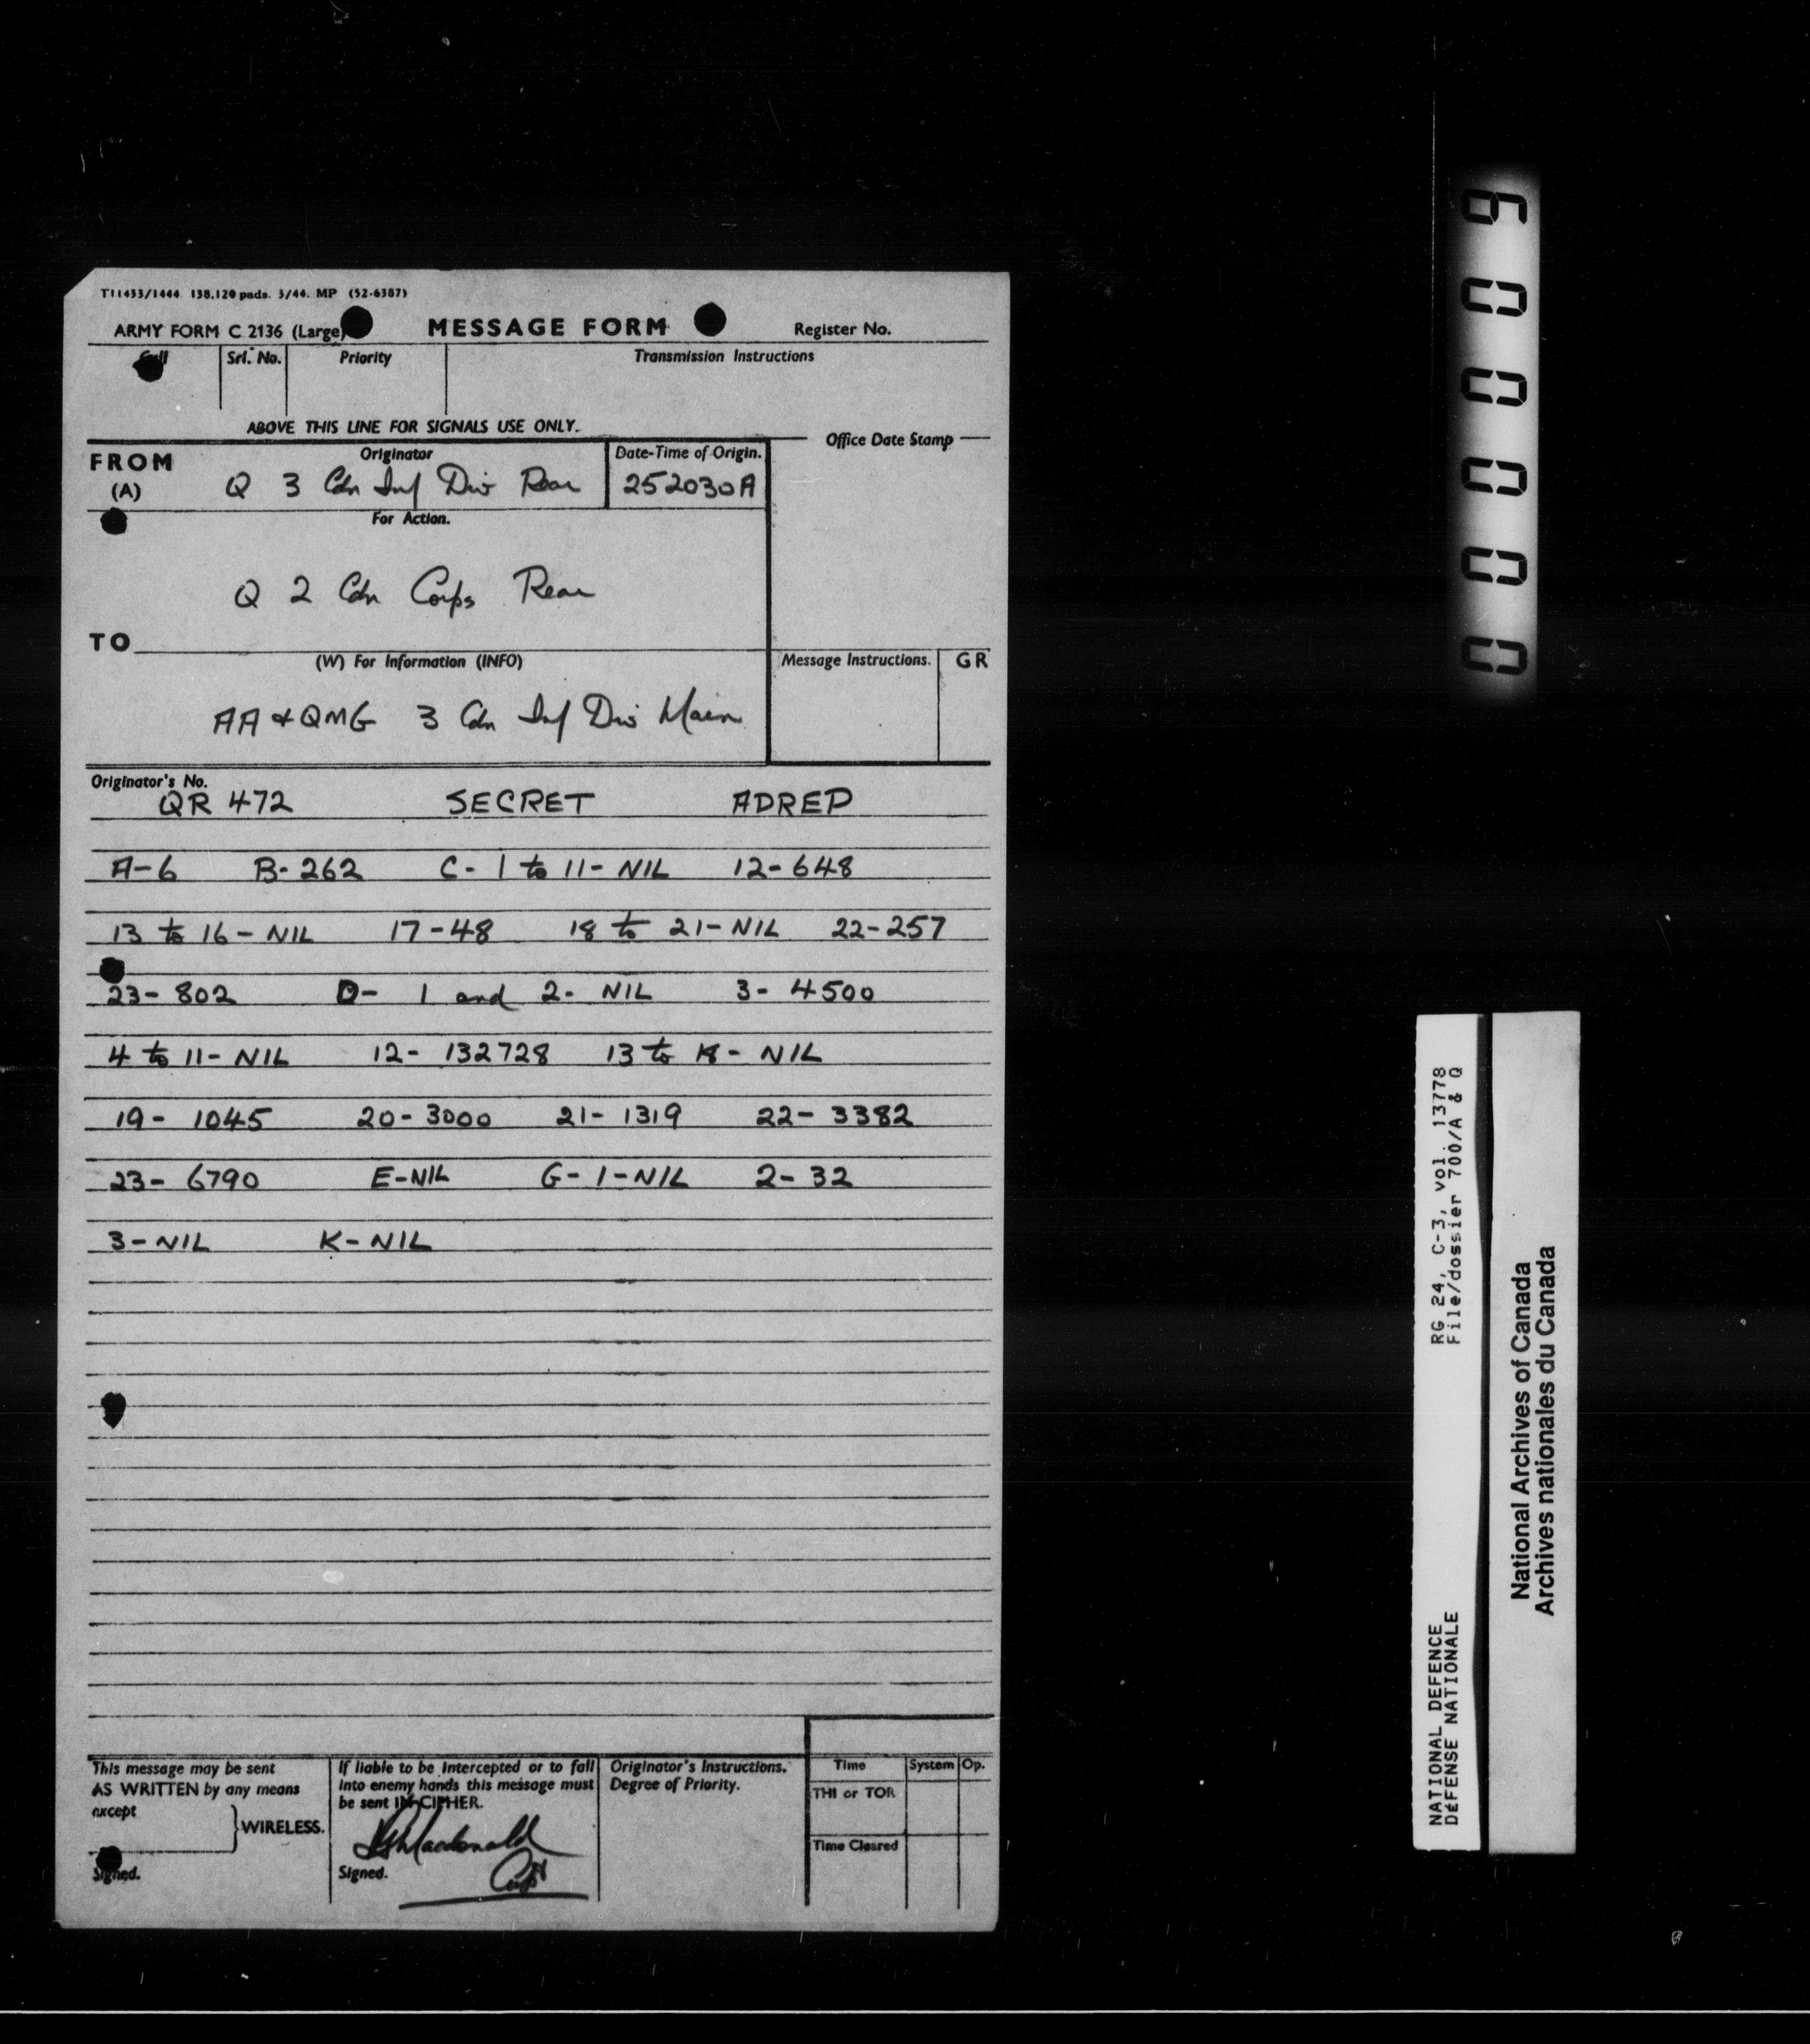 T11433/1444. 138,120 pads. 3/44. MP (52-6387)
ARMY FORM C 2136 (Large) MESSAGE FORM Register No.
Call Srl. No. Priority Transmission Instructions
ABOVE THIS LINE FOR SIGNALS USE ONLY.
Office Date Stamp
FROM Originator Date-Time of Origin.
(A) Q 3 Cdn Inf Div Rear 252030A
For Action.
Q 2 Cdn Corps Rear
TO
(W) For Information (INFO) Message Instructions. GR
AA & QMG 3 Cdn Inf Div Main
Originator's No.
QR 472 SECRET ADREP
A-6 B-262 C- 1 to 11- NIL 12-648
13 to 16- NIL 17-48 18 to 21- NIL 22-257
23- 802 D- 1 and 2- NIL 3- 4500
4 to 11- NIL 12- 132728 13 to 18- NIL
19- 1045 20-3000 21- 1319 22- 3382
23- 6790 E-NIL G- 1-NIL 2- 32
3-NIL K-NIL
This message may be sent
AS WRITTEN by any means
except
WIRELESS.
Signed.
If liable to be intercepted or to fall
into enemy hands this message must
be sent IN CIPHER.
Macdonald
Signed. Capt
Originator's Instructions.
Degree of Priority.
Time System Op.
THI or TOR
Time Cleared
000009
RG 24, C-3, vol. 13778
File/dossier 700/A & Q
NATIONAL DEFENCE
DÉFENSE NATIONALE
National Archives of Canada
Archives nationales du Canada